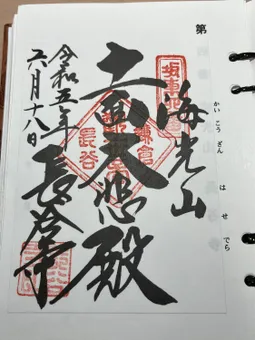 第
かいこうざん
はせでら
海光山
十一面大悲殿
長谷寺
令和五年
六月十八日
長谷